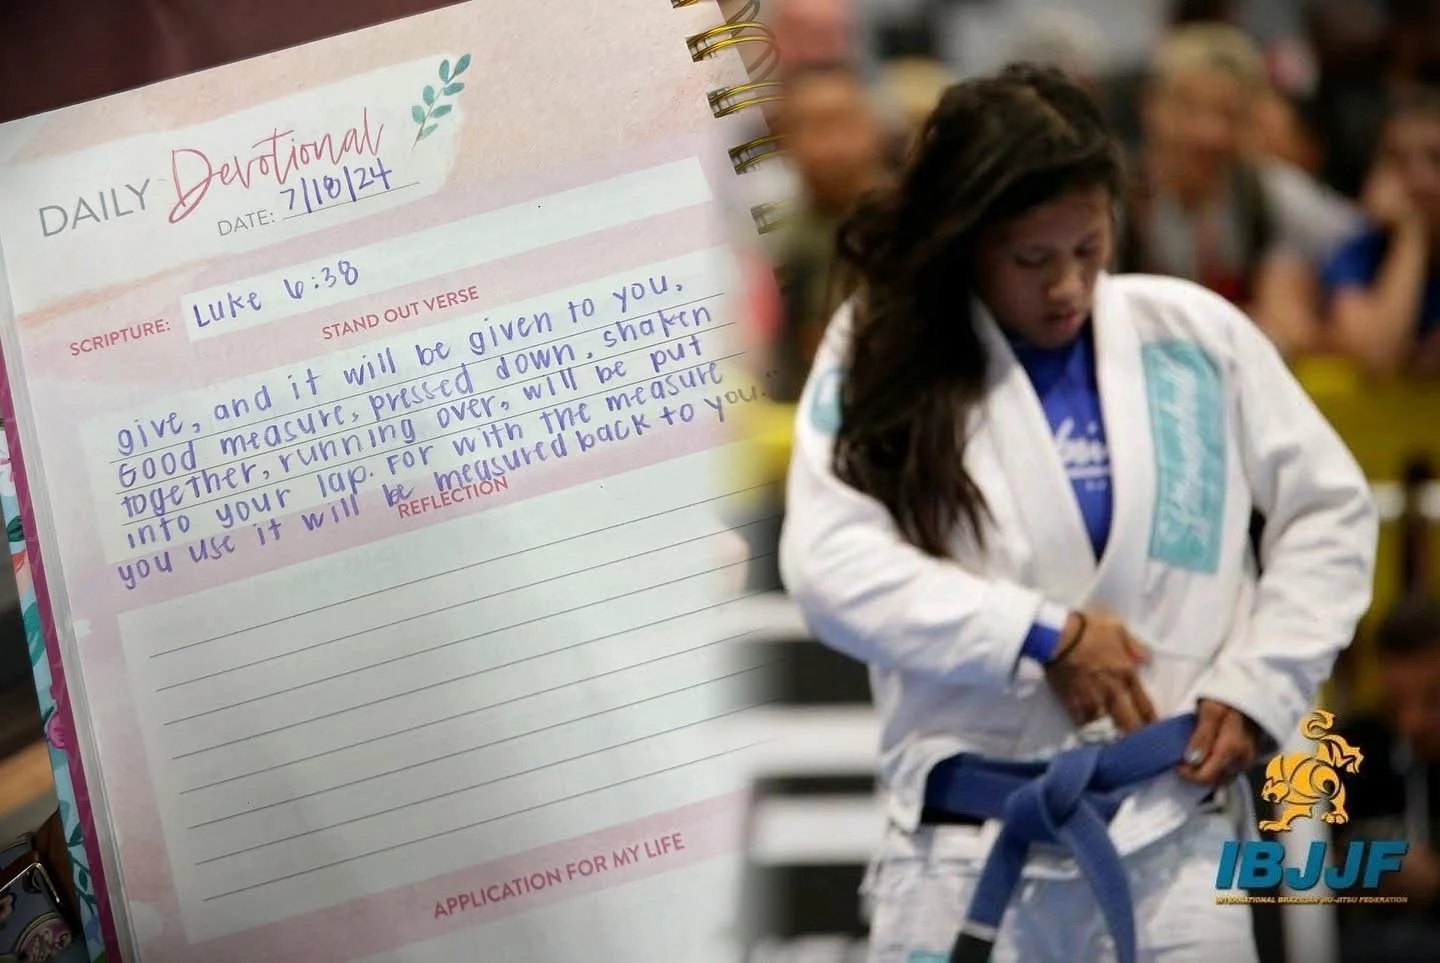 DAILY Devotional
DATE: 7/18/24
SCRIPTURE: Luke 6:38
STAND OUT VERSE
give, and it will be given to you.
Good measure, pressed down, shaken
together, running over, will be put
into your lap. For with the measure
you use it will be measured back to you."
REFLECTION
APPLICATION FOR MY LIFE
IBJJF
INTERNATIONAL BRAZILIAN JIU-JITSU FEDERATION